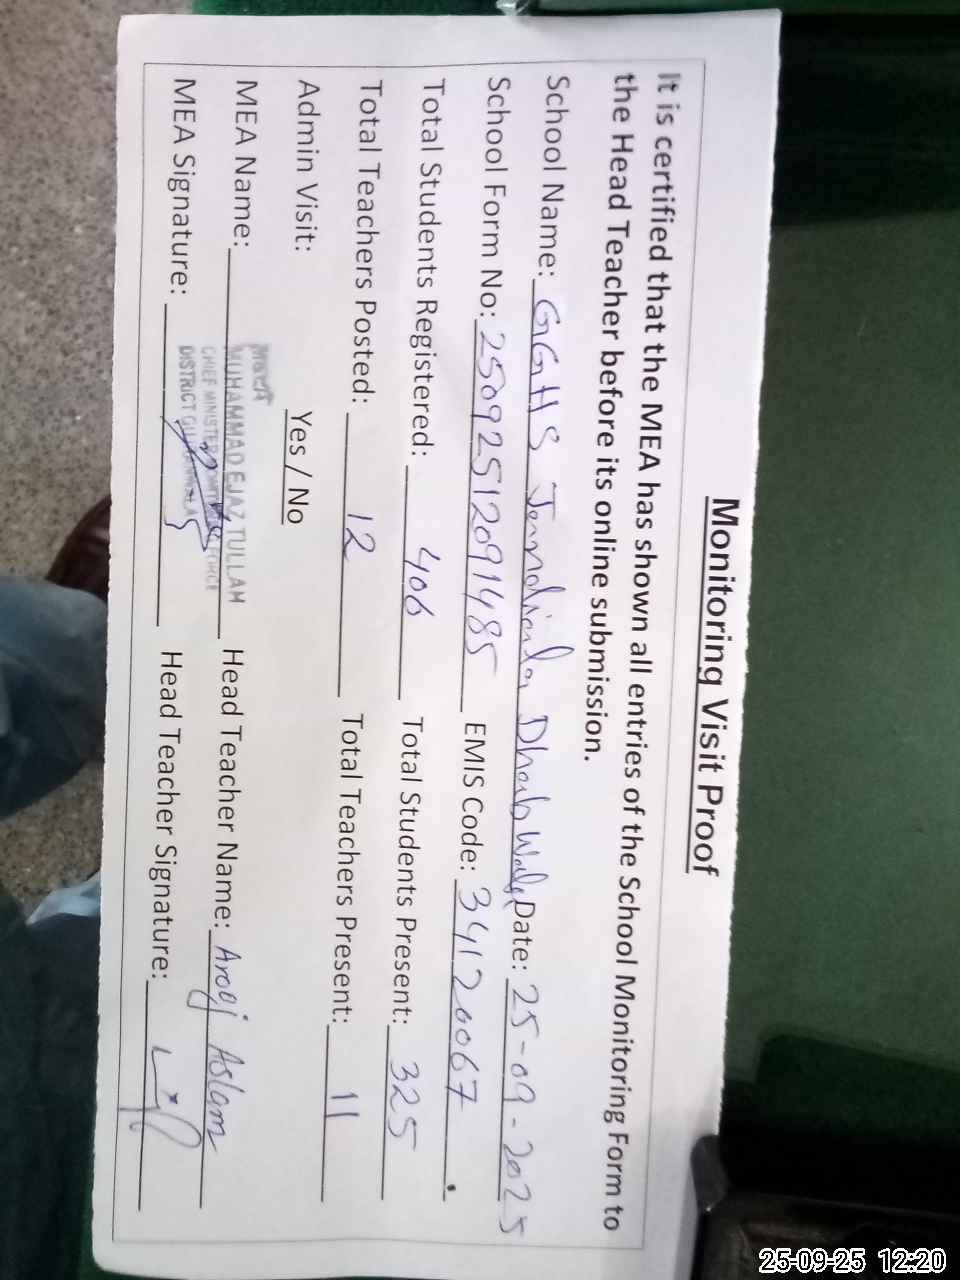 Monitoring Visit Proof
It is certified that the MEA has shown all entries of the School Monitoring Form to
the Head Teacher before its online submission.
School Name: GGHS Jandiala Dhab Wala Date: 25-09-2025
School Form No: 25092512091485 EMIS Code: 34120067
Total Students Registered: 406 Total Students Present: 325
Total Teachers Posted: 12 Total Teachers Present: 11
Admin Visit: Yes / No
MEA Name: MUHAMMAD EJAZ TULLAH Head Teacher Name: Arooj Aslam
CHIEF MINISTER MONITORING FORCE
DISTRICT GUJRANWALA
MEA Signature: Head Teacher Signature:
25-09-25 12:20